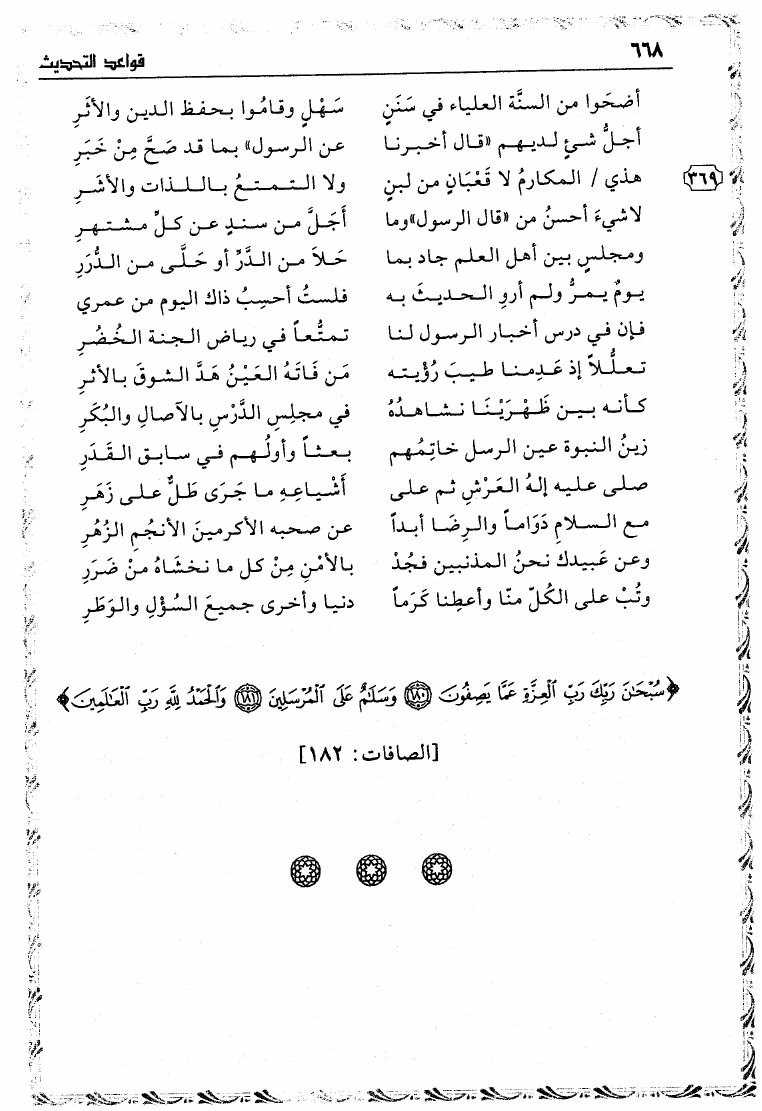 ٦٦٨ قواعد التحديث
أضحَوا من السنَّة العلياء في سَنَنٍ سَهْلٍ وقامُوا بحفظ الدين والأثَرِ
أجلُّ شئٍ لديهم «قال أخبرنا عن الرسول» بما قد صَحَّ مِنْ خَبَرِ
هذي / المكارمُ لا قَعْبَانِ من لبنٍ ولا التمتعُ باللذات والأشَرِ
٣٦٩
لاشيءَ أحسنُ من «قال الرسول»وما أَجَلَّ من سندٍ عن كلِّ مشتهرِ
ومجلسٍ بين أهل العلم جاد بما حَلاَ من الدَّرِّ أو حَلَّى من الدُّرَرِ
يومٌ يمرُّ ولم أروِ الحديثَ به فلستُ أحسِبُ ذاك اليوم من عمري
فإن في درس أخبار الرسول لنا تمتُّعاً في رياض الجنة الخُضْرِ
تعلُّلاً إذ عَدِمنا طيبَ رُؤيته مَن فَاتَهُ العَيْنُ هَدَّ الشوقَ بالأثرِ
كأنه بين ظَهْرَيْنَا نشاهدُهُ في مجلِسِ الدَّرْسِ بالآصالِ والبُكَرِ
زينُ النبوة عين الرسل خاتِمُهم بعثاً وأولُهم في سابق القَدَرِ
صلى عليه إلهُ العَرْشِ ثم على أَشْياعِهِ ما جَرَى طَلٌّ على زَهَرِ
مع السلامِ دَوَاماً والرِضَا أبداً عن صحبه الأكرمينَ الأنجُمِ الزُهُرِ
وعن عَبيدك نحنُ المذنبين فجُدْ بالأمْنِ مِنْ كل ما نخشَاهُ منْ ضَرَرِ
وتُبْ على الكُلّ منّا وأعطِنا كَرَماً دنيا وأخرى جميعَ السُؤْلِ والوَطَرِ
﴿سُبْحَٰنَ رَبِّكَ رَبِّ ٱلْعِزَّةِ عَمَّا يَصِفُونَ ١٨٠ وَسَلَٰمٌ عَلَى ٱلْمُرْسَلِينَ ١٨١ وَٱلْحَمْدُ لِلَّهِ رَبِّ ٱلْعَٰلَمِينَ﴾
[الصافات: ١٨٢]